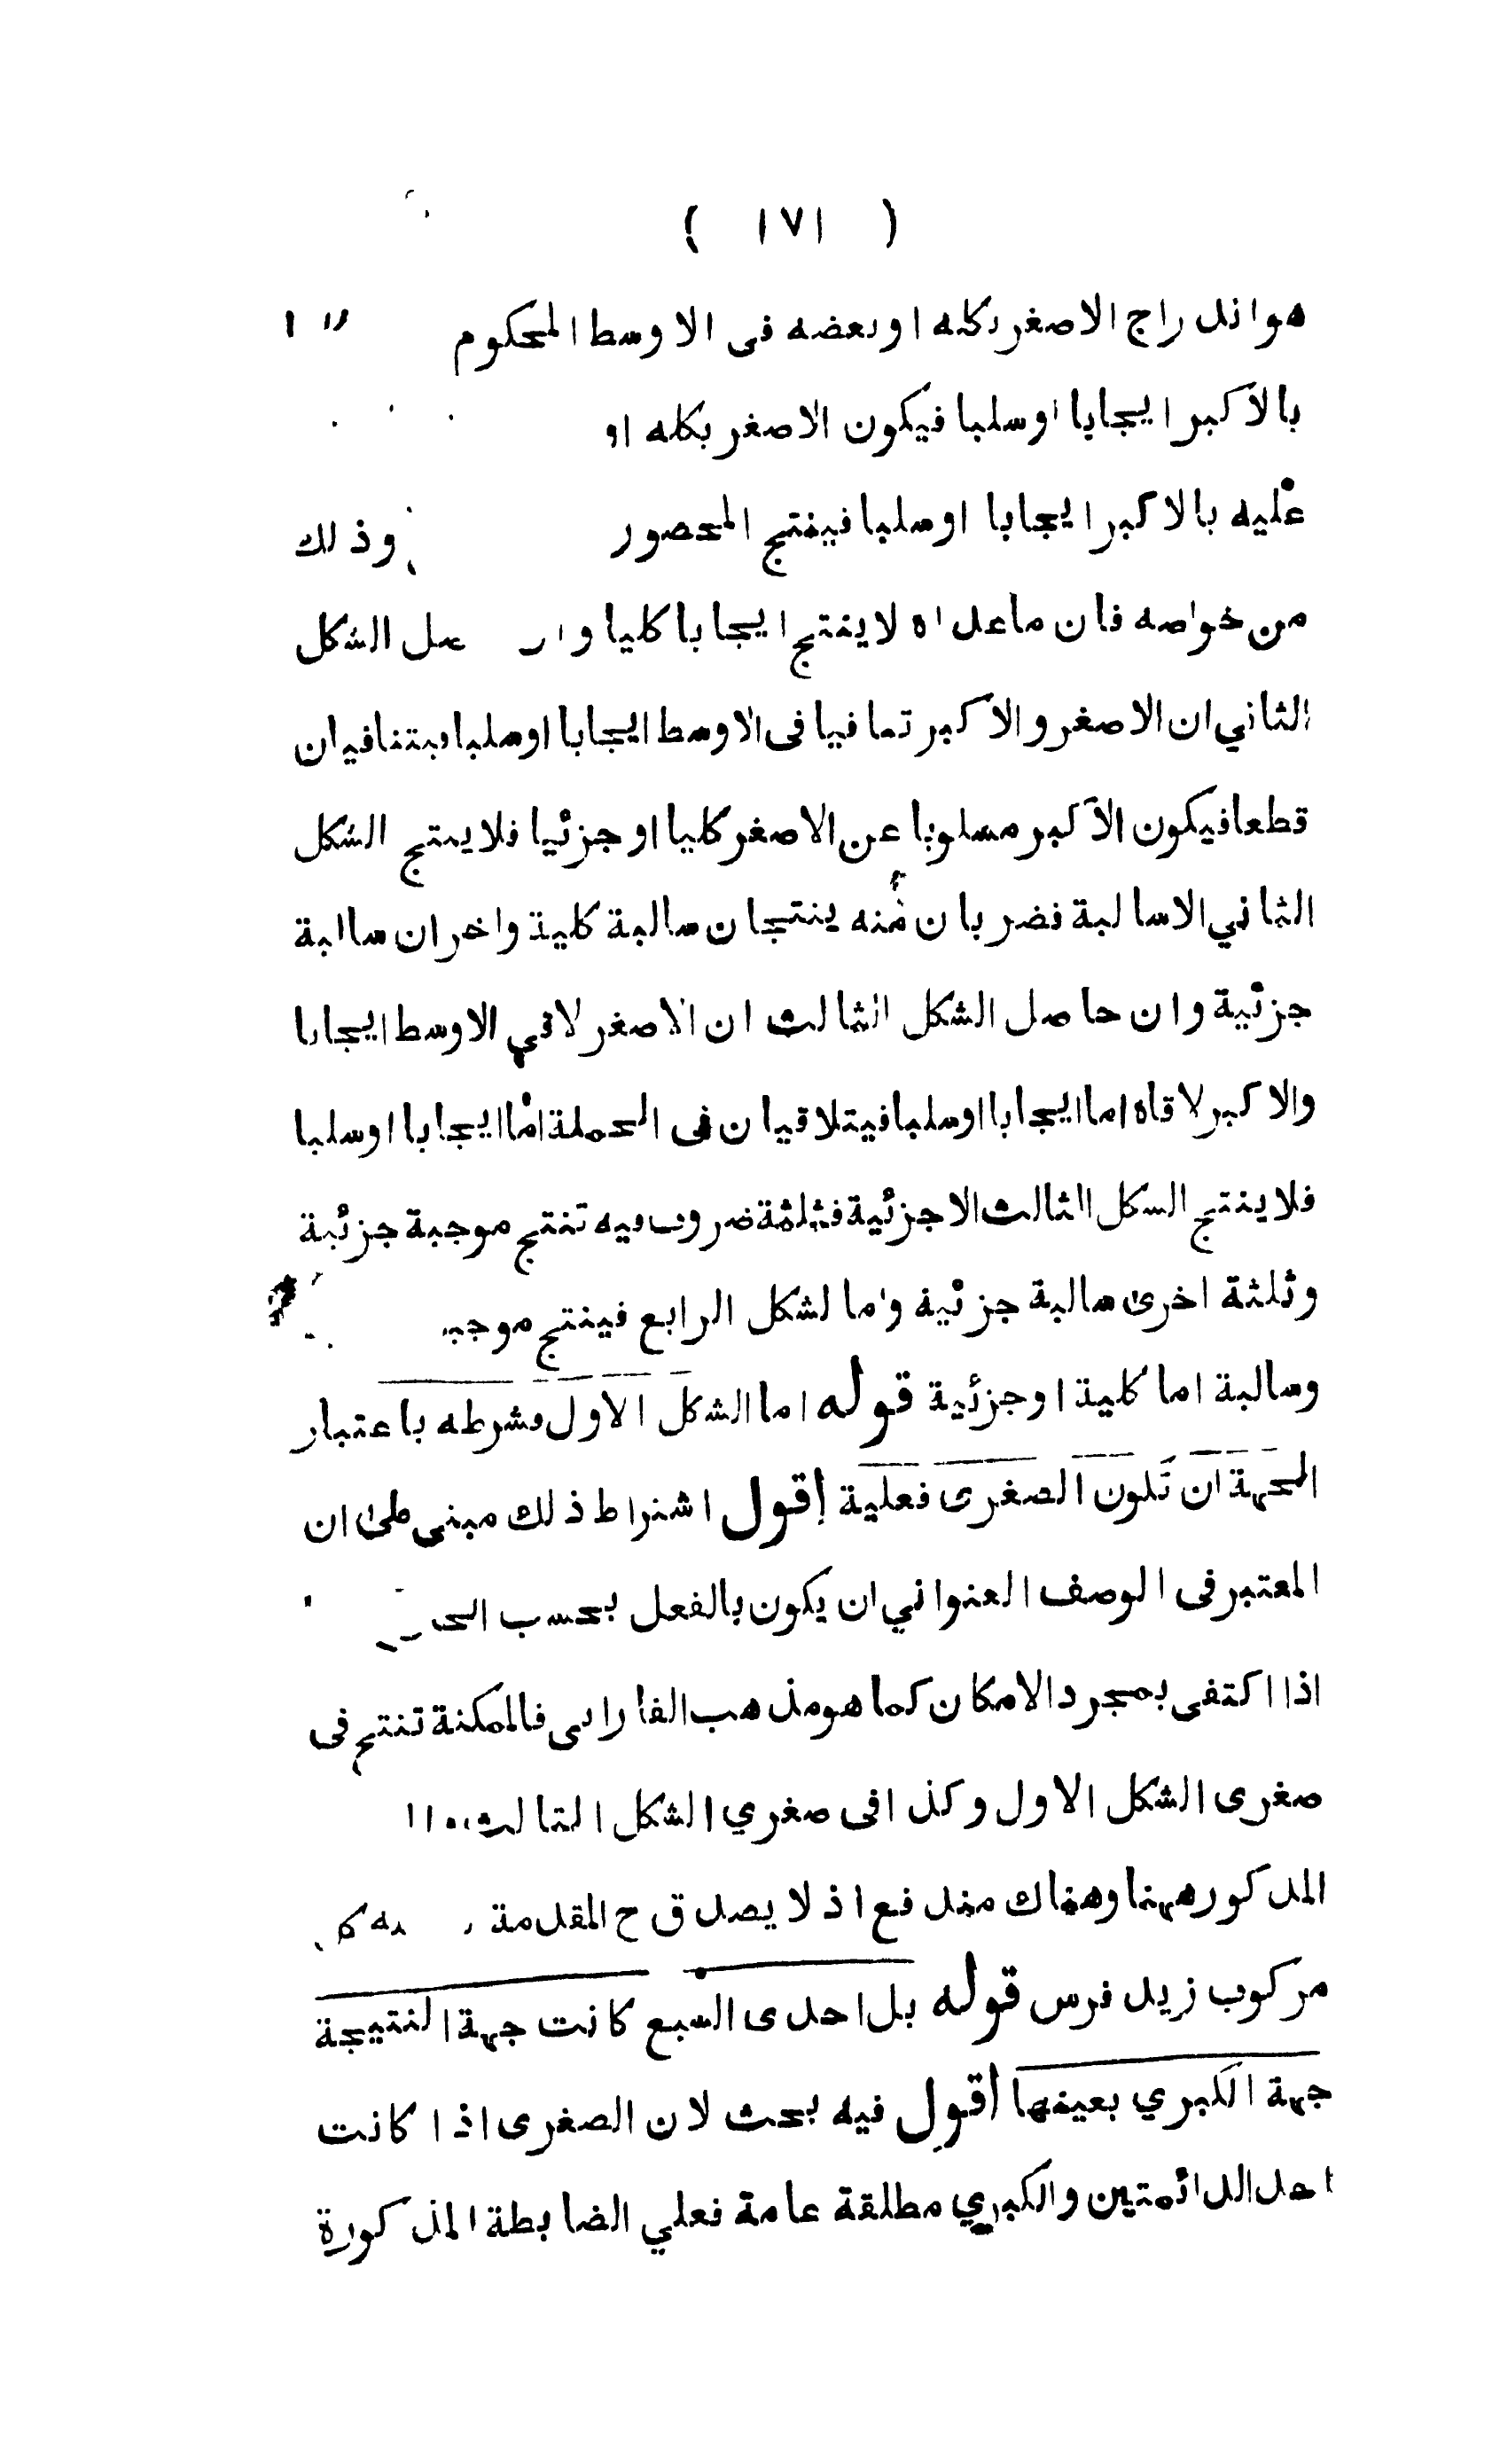 ( ١٧١ )
هو اندراج الاصغر بكله او بعضه فى الاوسط المحكوم
بالاكبر ايجابا او سلبا فيكون الاصغر بكله او
عليه بالاكبر ايجابا او سلبا فينتج المحصور وذلك
من خواصه فان ما عداه لا ينتج ايجابا كليا الشكل
الثاني ان الاصغر والاكبر تنافيا فى الاوسط ايجابا او سلبا فيتنافيان
قطعا فيكون الاكبر مسلوبا عن الاصغر كليا او جزئيا فلا ينتج الشكل
الثاني الا سالبة فضربان منه ينتجان سالبة كلية واخران سالبة
جزئية وان حاصل الشكل الثالث ان الاصغر لاقي الاوسط ايجابا
والاكبر لاقاه اما ايجابا او سلبا فيتلاقيان فى الجملة اما ايجابا او سلبا
فلا ينتج الشكل الثالث الا جزئية فثلثة ضروب فيه تنتج موجبة جزئية
وثلثة اخرى سالبة جزئية واما لشكل الرابع فينتج موجبة
وسالبة اما كلية او جزئية قوله اما الشكل الاول فشرطه باعتبار
الجهة ان تكون الصغرى فعلية اقول اشتراط ذلك مبنى على ان
المعتبر فى الوصف العنواني ان يكون بالفعل بحسب
اذا اكتفى بمجرد الامكان كما هو مذهب الفارابى فالممكنة تنتج فى
صغرى الشكل الاول وكذا فى صغري الشكل الثالث
المذكور ههنا وهناك مندفع اذ لا يصدق ح المقدمة
مركوب زيد فرس قوله بل احدى السبع كانت جهة النتيجة
جهة الكبري بعينها اقول فيه بحث لان الصغرى اذا كانت
احد الدائمتين والكبري مطلقة عامة فعلي الضابطة المذكورة